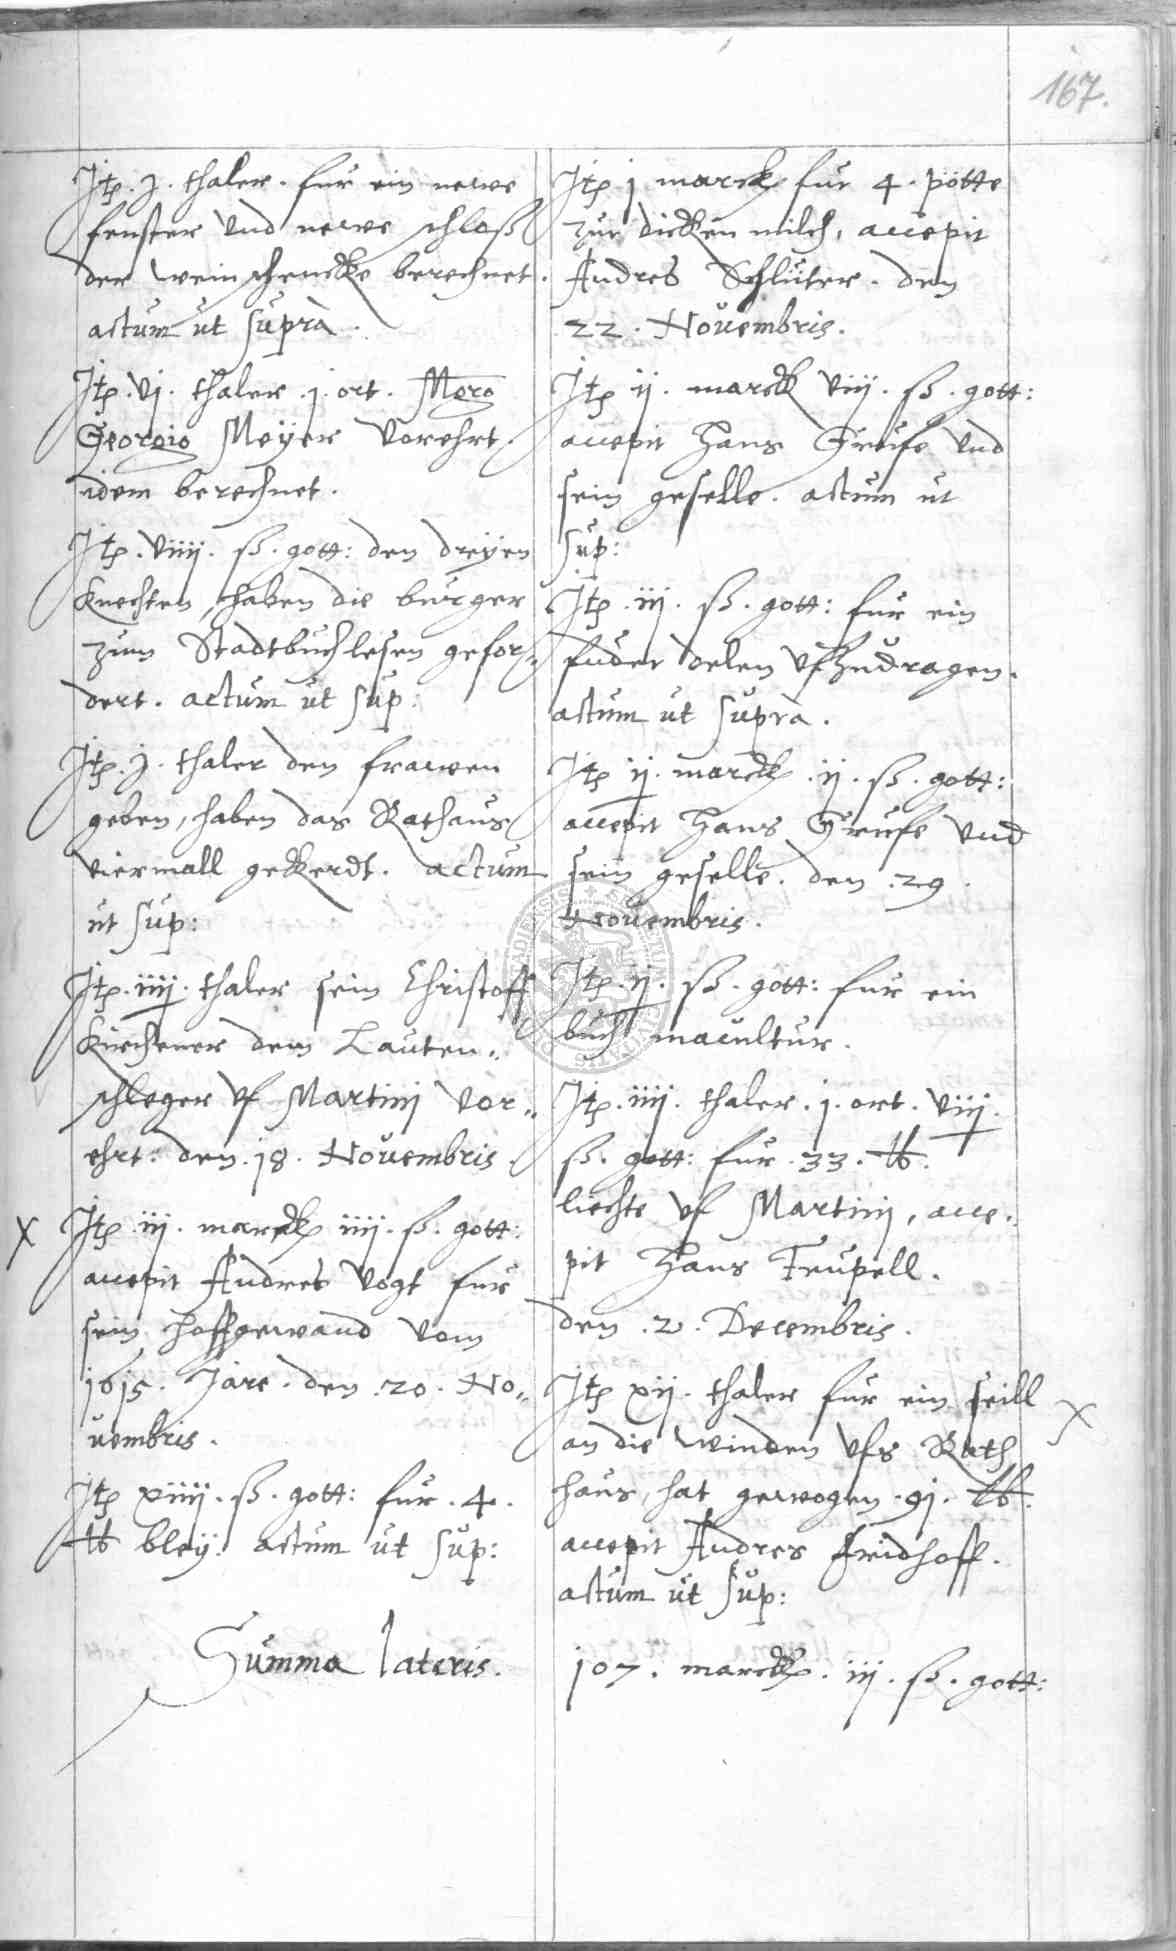 167.
Itꝫ. j. thaler. fur ein newe
fenster vnd newe schloß
der weinschencke berechnet.
actum ut supra.
Itꝫ. vj. thaler. j. ort. Mgro
Georgio Meÿer vorehrt.
idem berechnet.
Itꝫ. viiij. ß. gott: den dreÿen
knechten, haben die burger
zum Stadtbuchlesen gefor„
dert. actum ut sup:
Itꝫ. j. thaler den frawen
geben, haben das Rathaus
viermall gekerdt. actum
ut sup:
Itꝫ. iiij. thaler sein Christoff
Kirchener dem Lauten„
schleger vf Martini vor„
ehrt. den. 18. Nouembris.
X Itꝫ iij. marck iiij. ß. gott:
accepit Andres Vogt fur
sein hoffgewand vom
1615. Jare. den. 20. No„
uembris.
Itꝫ xiiij. ß. gott: fur. 4.
℔ bleÿ. actum ut sup:
Itꝫ j marck fur 4. pötte
zur dicken milch, accepit
Andres Schlüter. den
22. Nouembris.
Itꝫ ij. marck viij. ß. gott:
accepit Hans Grüfe vnd
sein geselle. actum ut
sup:
Itꝫ. iij. ß. gott: fur ein
fuder delen vfzudragen.
actum ut supra.
Itꝫ ij. marck. ij. ß. gott:
accepit Hans Grüfe vnd
sein geselle. den. 29.
Nouembris.
Itꝫ. ij. ß. gott: fur ein
buch macultur.
Itꝫ. iiij. thaler. j. ort. viij.
ß. gott: fur. 33. ℔.
liechte vf Martini, acce„
pit Hans Teupell.
den. 2. Decembris.
Itꝫ xij. thaler fur ein seill X
an die winden vfs Rath
haus, hat gewogen. 91. ℔.
accepit Andres Fridhoff.
actum ut sup:
Summa lateris. 107. marck. iij. ß. gott: